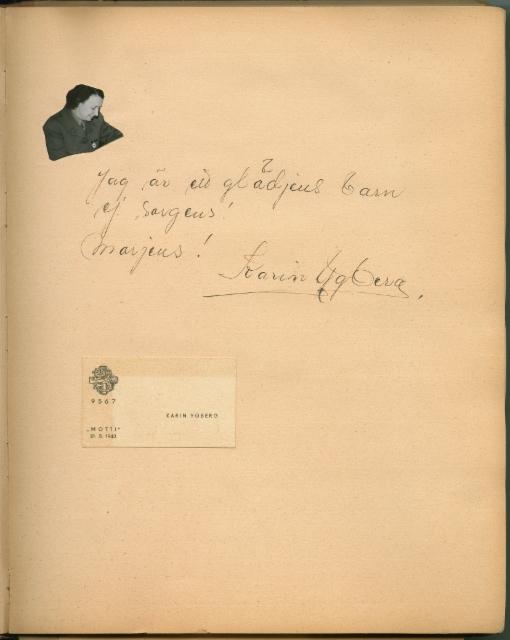 Jag är ett glädjens barn
ej sorgens!
Marjens!
Karin Ygberg.
9567
KARIN YGBERG
„MOTTI"
31. 5. 1943